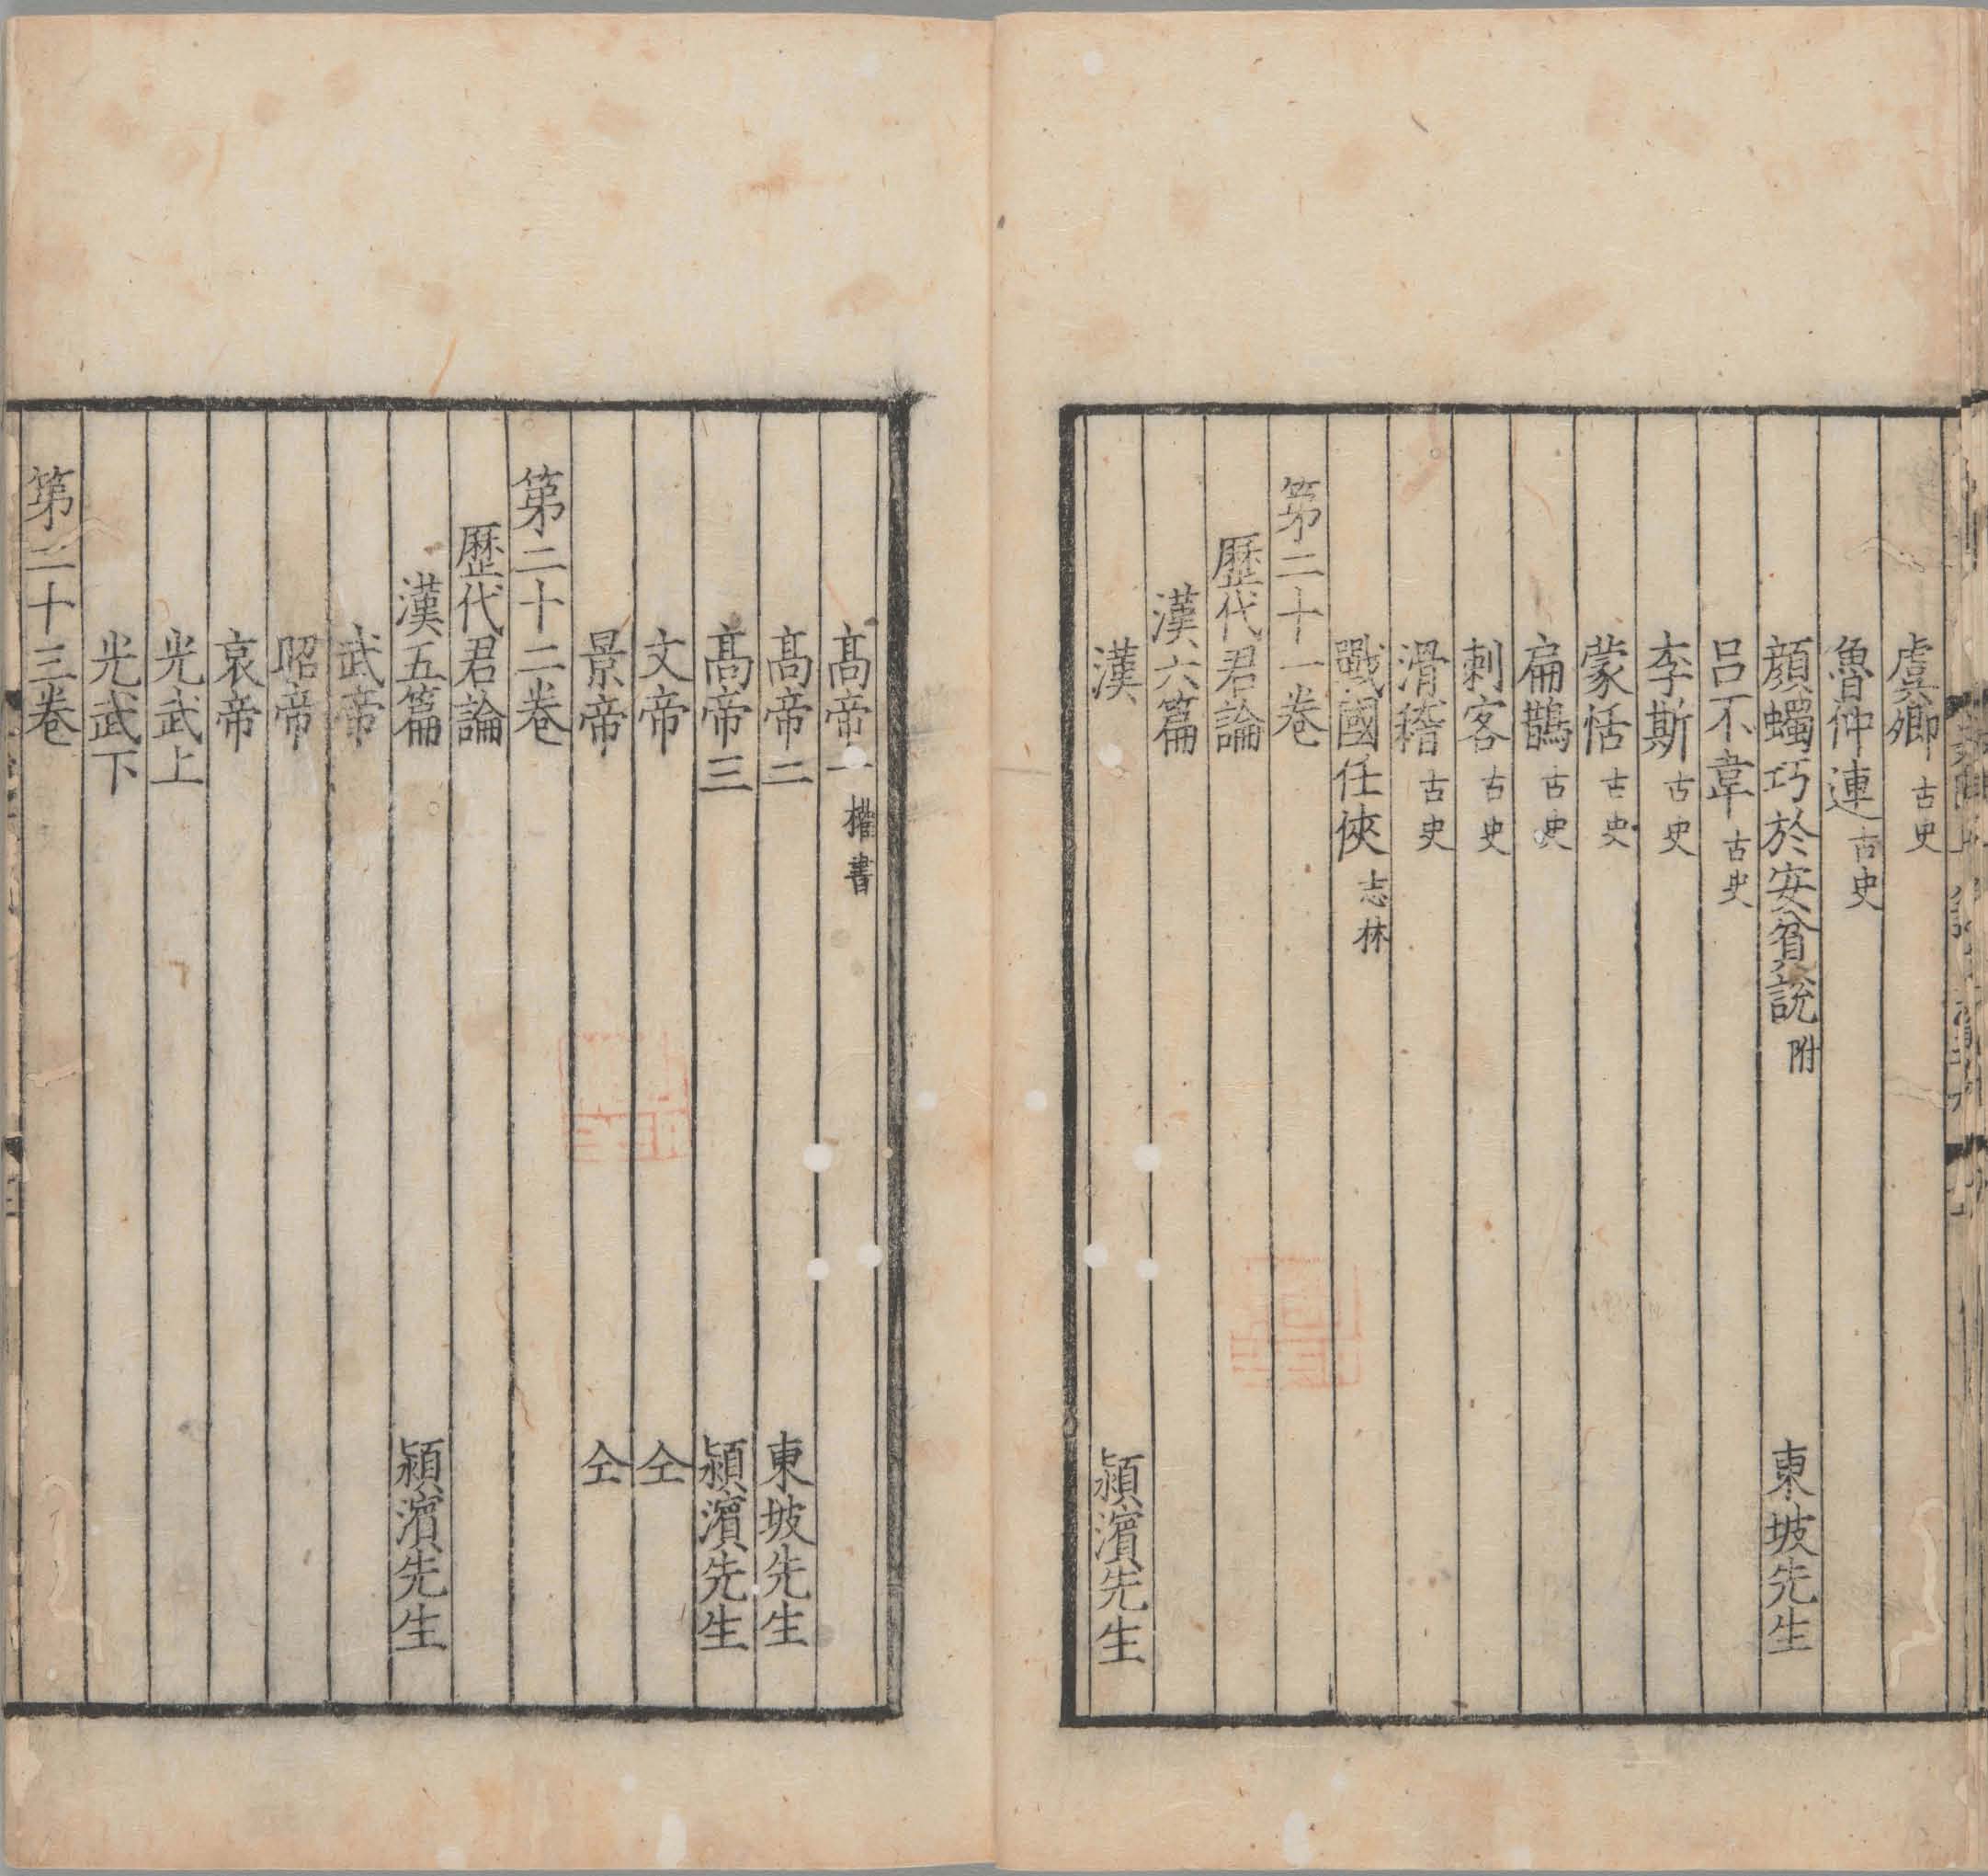 虞卿 古史
魯仲連 古史
顔蠋巧於安貧說 附 東坡先生
呂不韋 古史
李斯 古史
蒙恬 古史
扁鵲 古史
刺客 古史
滑稽 古史
戰國任俠 志林
第二十一卷
歷代君論
漢六篇
漢 潁濱先生
高帝一 權書
高帝二 東坡先生
高帝三 潁濱先生
文帝 仝
景帝 仝
第二十二卷
歷代君論
漢五篇 潁濱先生
武帝
昭帝
哀帝
光武上
光武下
第二十三卷